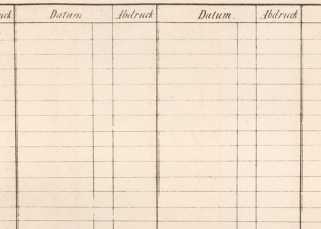 Datum Abdruck Datum. Abdruck